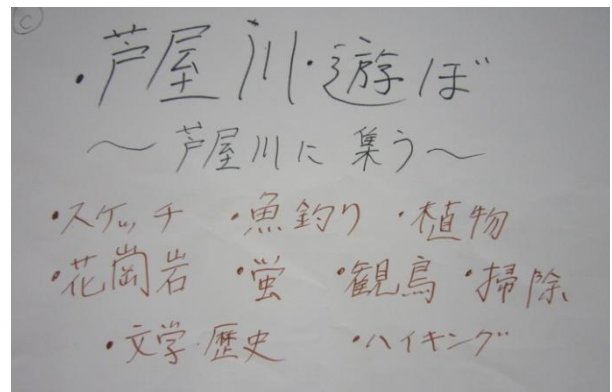 C
・芦屋川・遊ぼ
～芦屋川に集う～
・スケッチ ・魚釣り ・植物
・花崗岩 ・蛍 ・観鳥 ・掃除
・文学・歴史 ・ハイキング